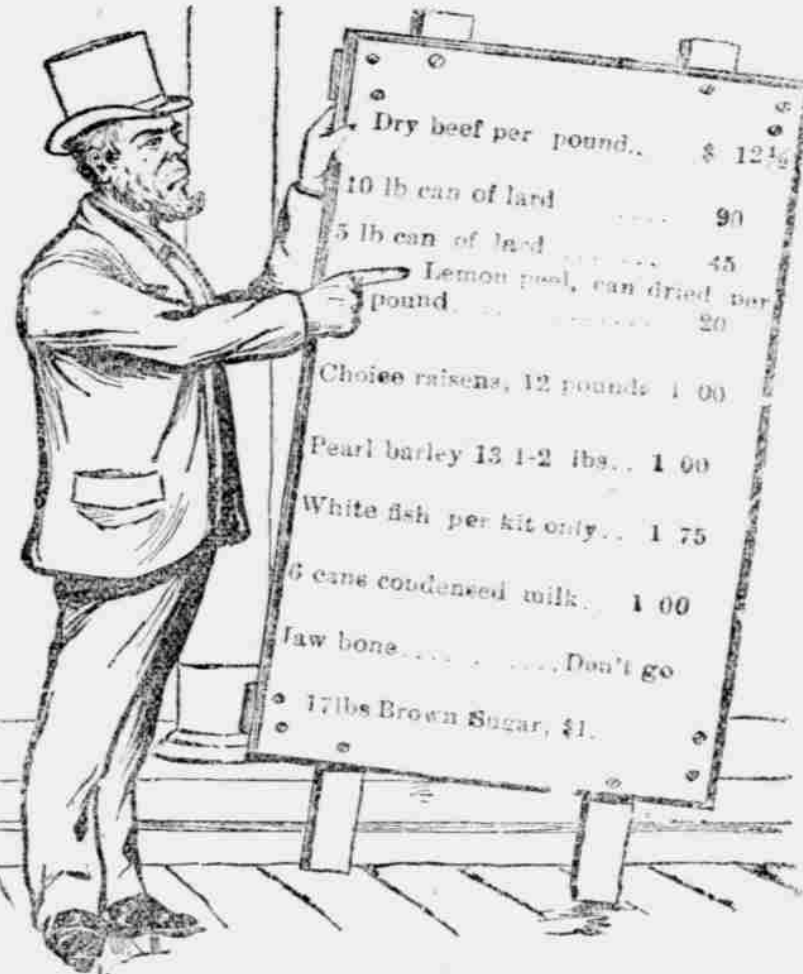 Dry beef per pound.. $ 12½
10 lb can of lard .... 90
5 lb can of lard ....... 45
Lemon peel, can dried per
pound.... ......... 20
Choice raisens, 12 pounds 1 00
Pearl barley 13 1-2 lbs.. 1 00
White fish per kit only.. 1 75
6 cans condensed milk. 1 00
Jaw bone..... . .....Don't go
17lbs Brown Sugar, $1.